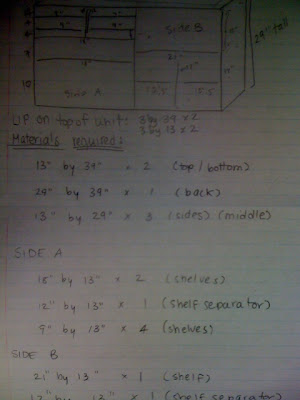 9" 9"
9" 9"
18"
Side B
21"
29" tall
10
Side A
15.5
LIP on top of unit: 3 by 39 x 2
3 by 13 x 2
Materials required:
13" by 39" x 2 (top/bottom)
29" by 39" x 1 (back)
13" by 29" x 3 (sides) (middle)
SIDE A
18" by 13" x 2 (shelves)
12" by 13" x 1 (shelf separator)
9" by 13" x 4 (shelves)
SIDE B
21" by 13" x 1 (shelf)
by 13" x 1 (shelf separator)